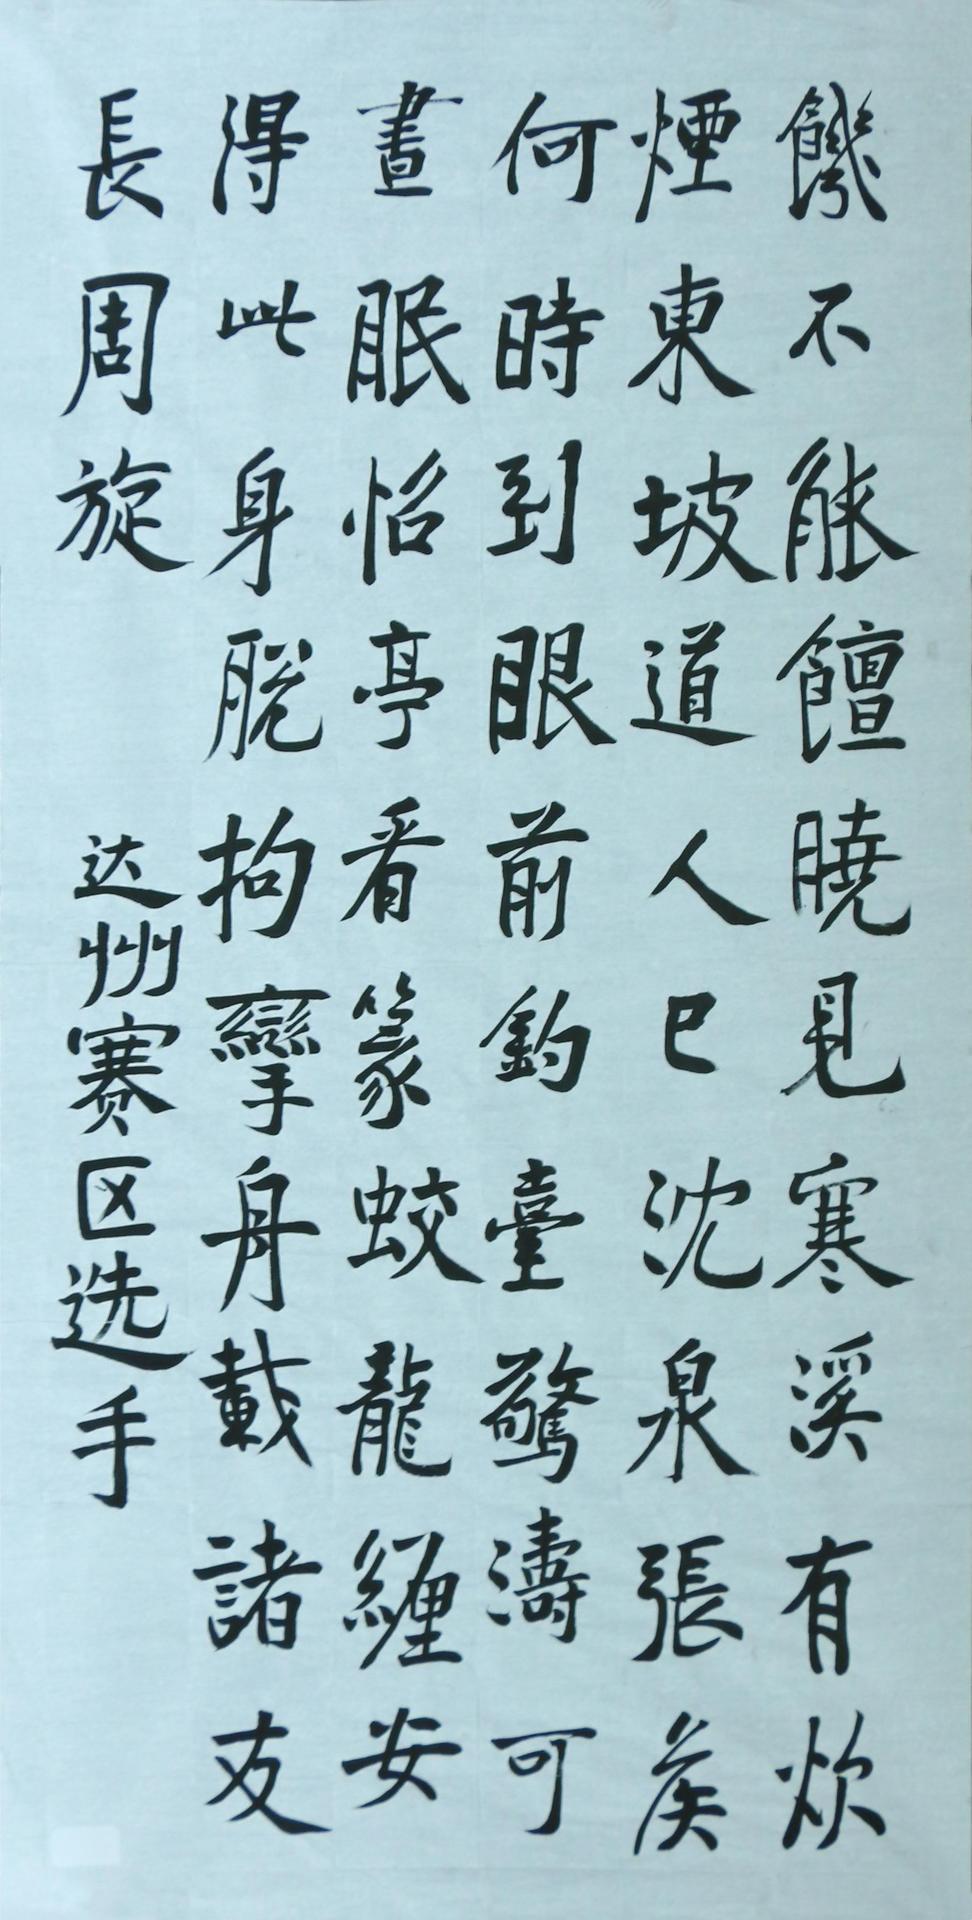 饑不能饘曉見寒溪有炊
煙東坡道人已沈泉張矦
何時到眼前釣臺驚濤可
晝眠怡亭看篆蛟龍纏安
得此身脫拘攣舟載諸友
長周旋
达州赛区选手